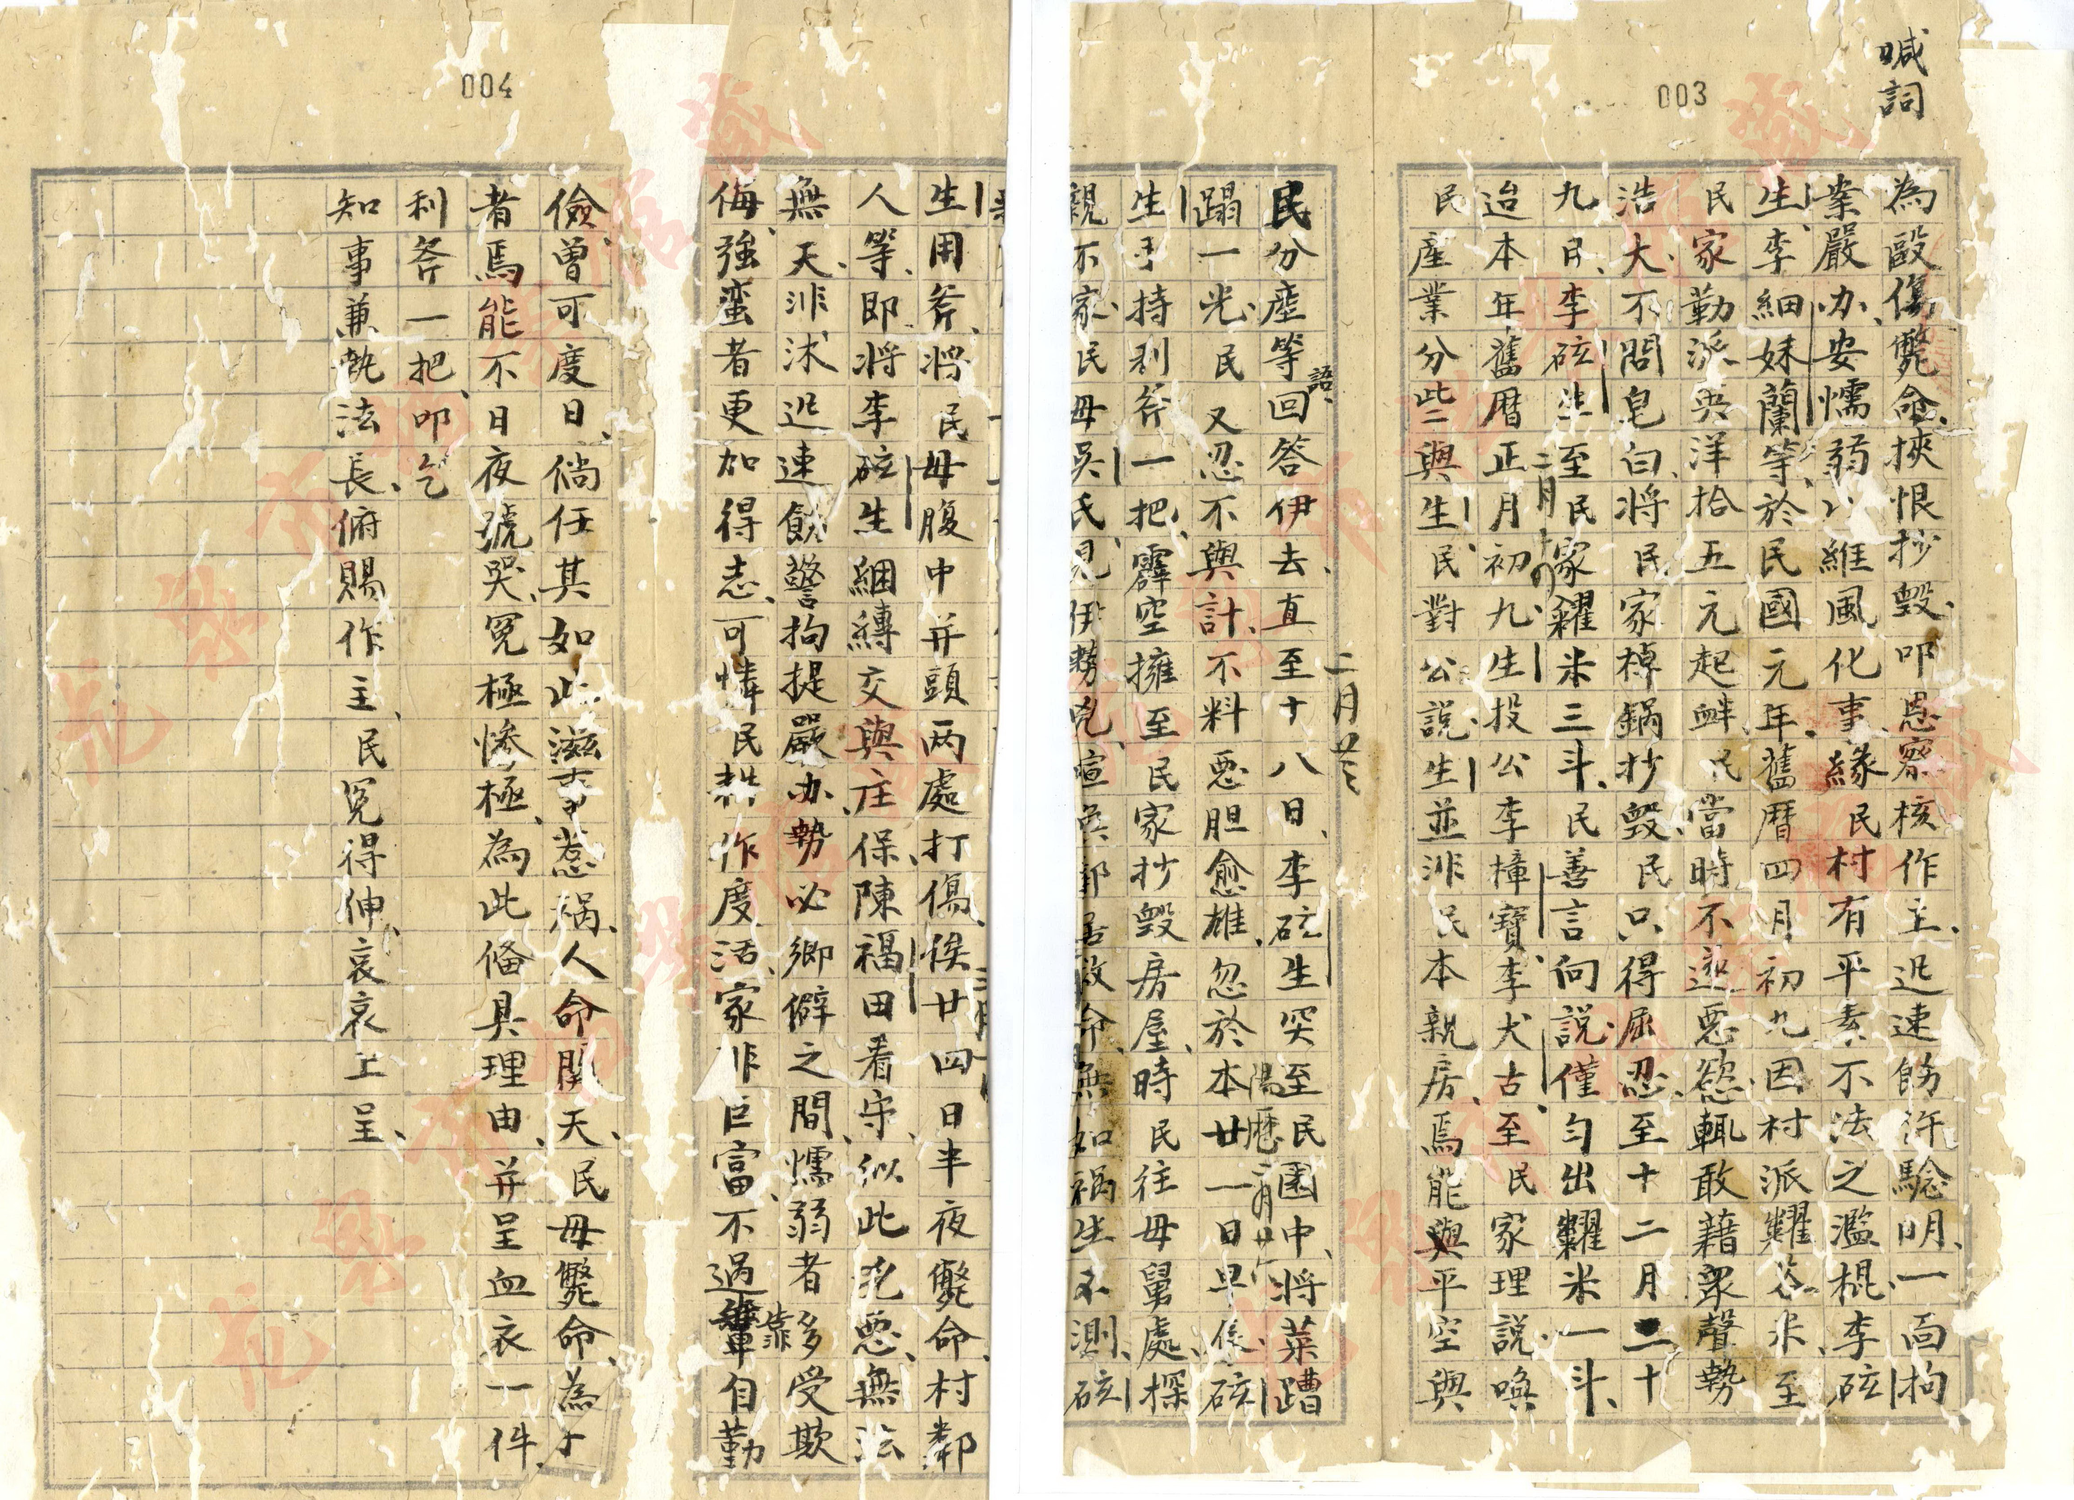 喊詞
003
為毆傷斃命挾恨抄毀叩恩察核作主迅速飭許騐明一面拘
業嚴办安懦弱以維風化事緣民村有平素不法之濫棍李硡
生李細妹蘭等於民國元年舊曆四月初九因村派糶谷米至
民家勤派英洋拾五元起衅民當時不遂惡慾輒敢藉眾聲勢
浩大不問皂白将民家棹鍋抄毀民只得屈忍至十二月二十
九日李硡生至民家糴米三斗民善言向説僅勻出糶米一斗
二月十四
迨本年舊曆正月初九生投公李樟寶李犬古至民家理説喚
民產業分些與生民對公説生並非民本親房焉能與平空與
二月廿三
民分產等語回答伊去直至十八日李硡生突至民園中将菜蹧
蹋一光民又忍不與計不料惡胆愈雄忽於本廿一日早係硡
陽曆二月廿六
生手持利斧一把霹空擁至民家抄毀房屋時民往母舅處探
親不家民母吳氏見伊勢兇喧喚鄰居救命無如禍生不測硡
004
生用斧将民母腹中并頭两處打傷候廿四日半夜斃命村鄰
人等即将李硡生綑縛交與庄保陳福田看守似此兇惡無法
無天非沐迅速飭警拘提嚴办勢必鄉僻之間懦弱者多受欺
侮強蛮者更加得志可憐民耕作度活家非巨富不過靠自勤
儉曾可度日倘任其如此滋事惹禍人命關天民母斃命為子
者焉能不日夜號哭冤極慘極為此俻具理由并呈血衣一件
利斧一把叩乞
知事兼執法長俯賜作主民冤得伸哀哀上呈